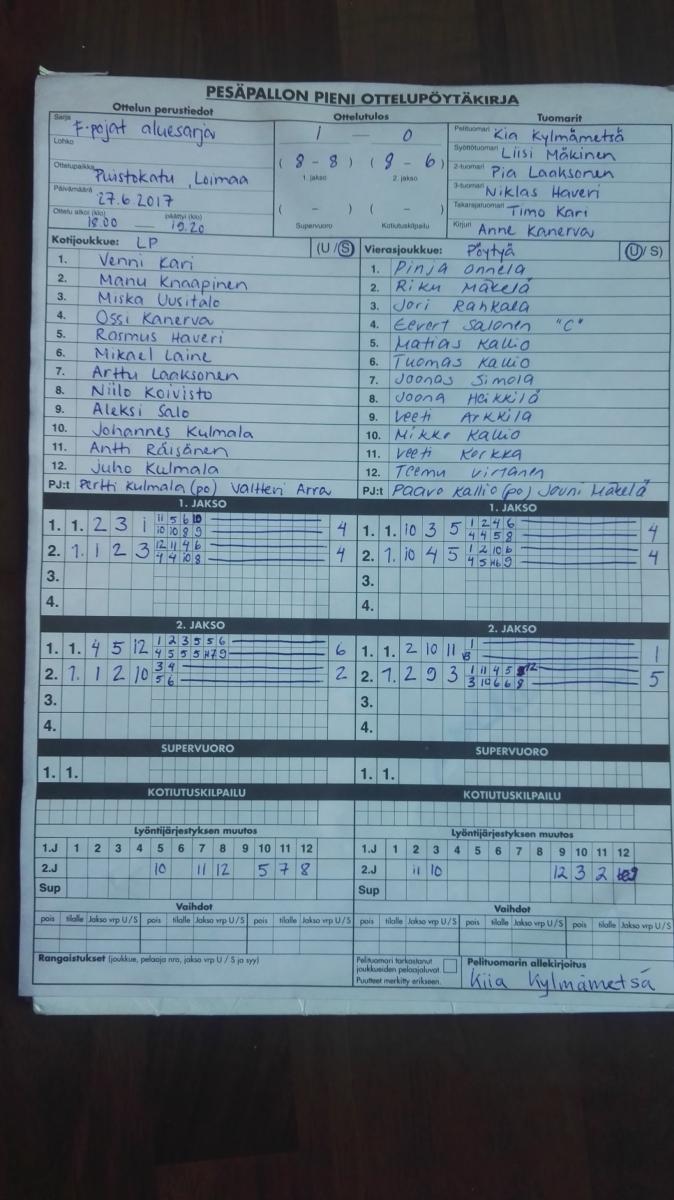 PESÄPALLON PIENI OTTELUPÖYTÄKIRJA
Ottelun perustiedot
Sarja F-pojat aluesarja
Lohko
Ottelupaikka Puistokatu, Loimaa
Päivämäärä 27.6.2017
Ottelu alkoi (klo) 18.00 — päättyi (klo) 19.20
Ottelutulos
1 — 0
(8 - 8) (8 - 6)
1. jakso 2. jakso
( - ) ( - )
Supervuoro Kotiutuskilpailu
Tuomarit
Pelituomari Kia Kylmämetsä
Syöttötuomari Liisi Mäkinen
2-tuomari Pia Laaksonen
3-tuomari Niklas Haveri
Takarajatuomari Timo Kari
Kirjuri Anne Kanerva
Kotijoukkue: LP (U/S)
1. Venni Kari
2. Manu Knaapinen
3. Miska Uusitalo
4. Ossi Kanerva
5. Rasmus Haveri
6. Mikael Laine
7. Arttu Laaksonen
8. Niilo Koivisto
9. Aleksi Salo
10. Johannes Kulmala
11. Antti Räisänen
12. Juho Kulmala
PJ:t Pertti Kulmala (po) Valtteri Arra
Vierasjoukkue: Pöytyä (U/S)
1. Pinja Onnela
2. Riku Mäkelä
3. Jori Rahkala
4. Eevert Salonen "C"
5. Matias Kallio
6. Tuomas Kallio
7. Joonas Simola
8. Joona Heikkilä
9. Veeti Arkkila
10. Mikko Kallio
11. Veeti Korkka
12. Teemu Virtanen
PJ:t Paavo Kallio (po) Jouni Mäkelä
1. JAKSO
1. 1. 2 3 1 11 5 6 10 4
10 10 8 9
2. 1. 1 2 3 12 11 4 6 4
4 4 10 8
3.
4.
1. JAKSO
1. 1. 10 3 5 1 2 4 6 4
4 4 5 8
2. 1. 10 4 5 1 2 10 6 4
4 5 9
3.
4.
2. JAKSO
1. 1. 4 5 12 1 2 3 5 5 6 6
4 5 5 5 9
2. 1. 1 2 10 3 4 2
5 6
3.
4.
2. JAKSO
1. 1. 2 10 11 1 1
2. 1. 2 9 3 1 11 4 5 12 5
3 10 6 6 8
3.
4.
SUPERVUORO
1. 1.
SUPERVUORO
1. 1.
KOTIUTUSKILPAILU
KOTIUTUSKILPAILU
Lyöntijärjestyksen muutos
1.J 1 2 3 4 5 6 7 8 9 10 11 12
2.J 10 11 12 5 7 8
Sup
Lyöntijärjestyksen muutos
1.J 1 2 3 4 5 6 7 8 9 10 11 12
2.J 11 10 12 3 2
Sup
Vaihdot
pois tilalle Jakso vrp U/S pois tilalle Jakso vrp U/S pois tilalle Jakso vrp U/S
Vaihdot
pois tilalle Jakso vrp U/S pois tilalle Jakso vrp U/S pois tilalle Jakso vrp U/S
Rangaistukset (joukkue, pelaaja nro, jakso vrp U / S ja syy)
Pelituomari tarkastanut
joukkueiden pelaajaluvat.
Puutteet merkitty erikseen.
Pelituomarin allekirjoitus
Kiia Kylmämetsä